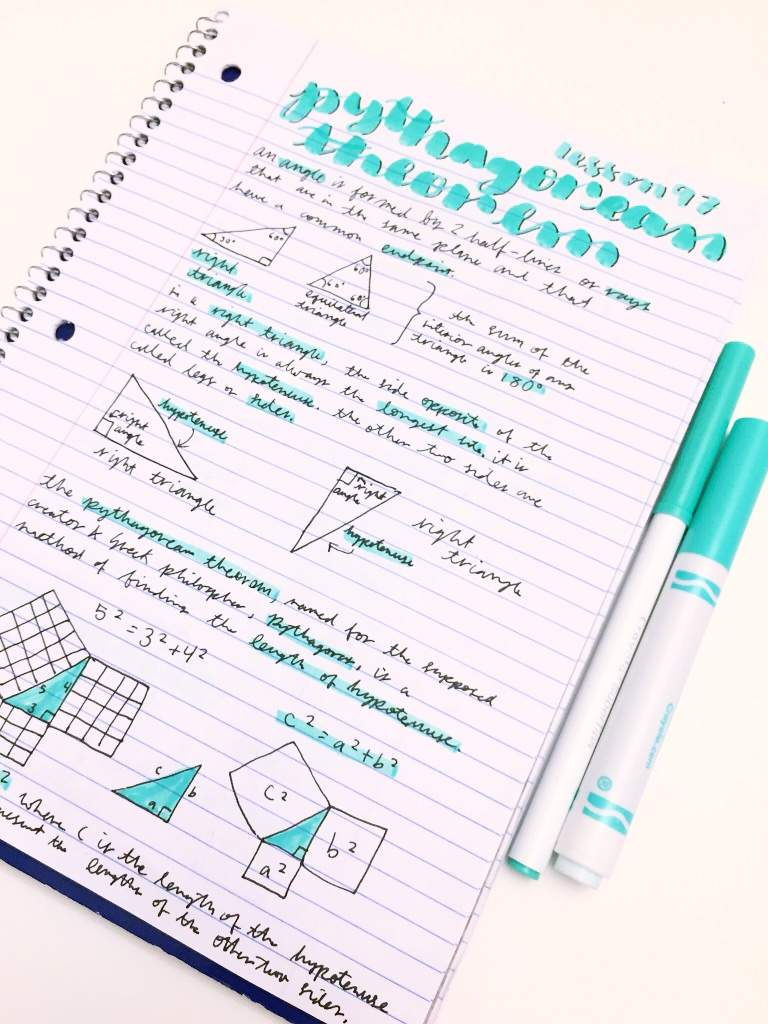 lesson 97
pythagorean
theorem
an angle is formed by 2 half-lines or rays
that are in the same plane and that
have a common endpoint.
30°
60°
right
triangle
60°
60°
60°
equilateral
triangle
the sum of the
interior angles of any
triangle is 180°
in a right triangle, the side opposite of the
right angle is always the longest side. it is
called the hypotenuse. the other two sides are
called legs or sides.
right
angle
hypotenuse
right triangle
right
angle
hypotenuse
right
triangle
the pythagorean theorem, named for the supposed
creator & greek philosopher, pythagoras, is a
method of finding the length of hypotenuse.
5² = 3² + 4²
5
4
3
c² = a² + b²
c
b
a
c²
b²
a²
2
where c is the length of the hypotenuse
the lengths of the other two sides.
Crayola.com
®